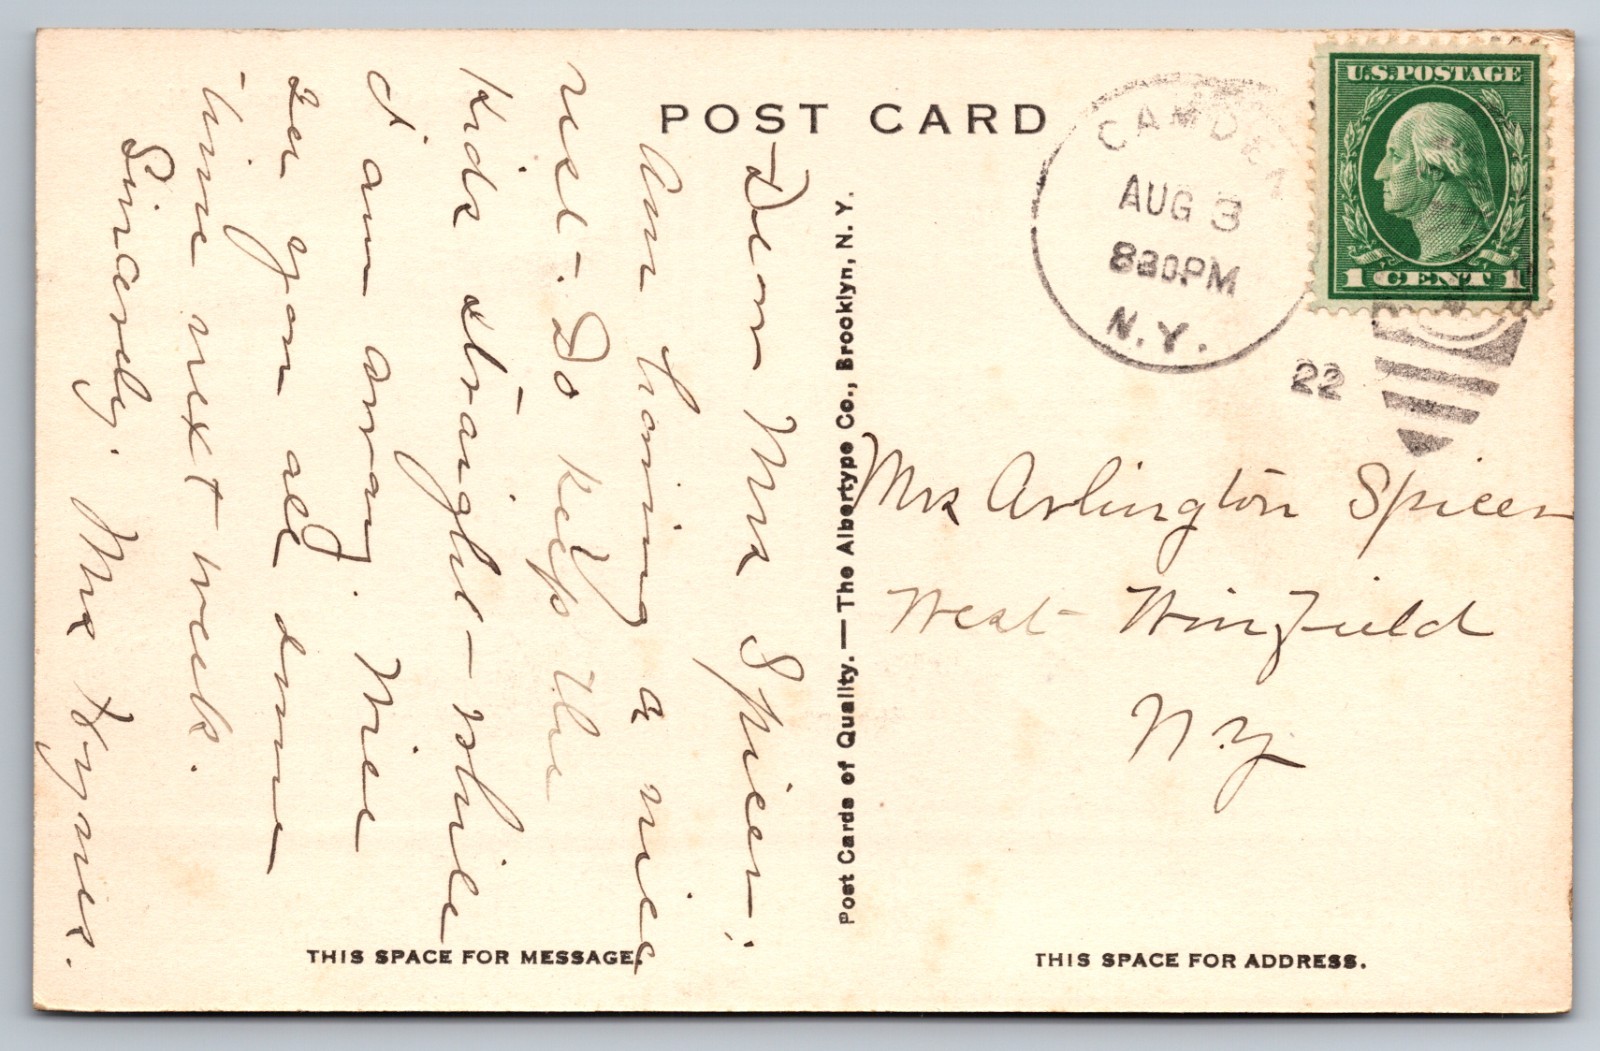 POST CARD
CAMDEN
AUG 3
830PM
N.Y.
22
U.S. POSTAGE
1 CENT 1
Dear Mrs Spicer:
Am having a nice
rest-. Do keep the
kids straight- while
I am away. Will
see you all some
time next week.
Sincerely. Mrs
Post Cards of Quality. — The Albertype Co., Brooklyn, N. Y.
Mrs Arlington Spicer
West Winfield
N.Y.
THIS SPACE FOR MESSAGE.
THIS SPACE FOR ADDRESS.